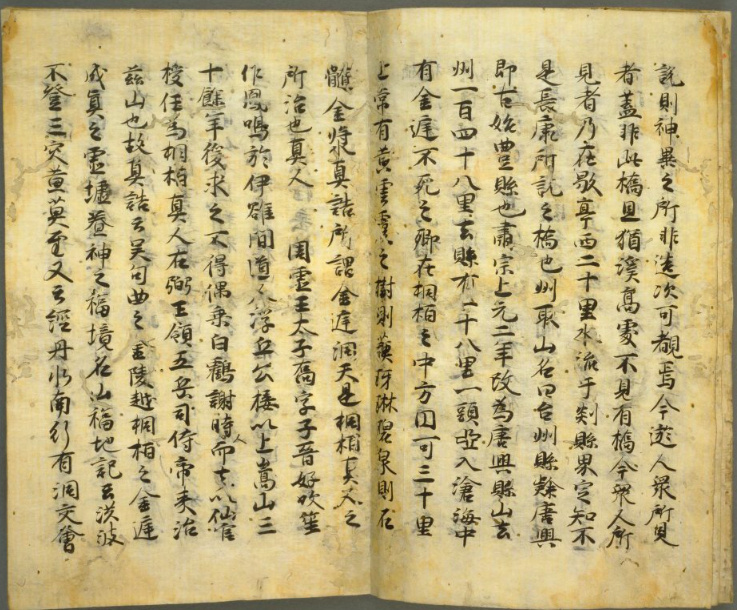 說則神異之所非造次可覩焉今遊人衆所見
者蓋非此橋且猶溪高處不見有橋今衆人所
見者乃在歇亭西二十里水流于剡縣界定知不
是長康所說之橋也州取山名曰台州縣隸唐興
即古始豐縣也肅宗上元二年改為唐興縣山去
州一百四十八里去縣有一十八里一頭亞入滄海中
有金庭不死之鄉在桐柏之中方四可三十里
上常有黃雲覆之樹則蘇玡琳碧泉則石
髓金漿真誥所謂金庭洞天是桐柏真人之
所治也真人 周靈王太子喬字子晉好吹笙
作鳳鳴於伊雒間道人浮丘公接以上嵩山三
十餘年後求之不得偶乘白鶴謝時人而去以仙官
授任為桐柏真人右弼王領五岳司侍帝來治
茲山也故真誥云吳句曲之金陵越桐柏之金庭
成真之靈墟養神之福境名山福地記云洪波
不登三災莫至又云經丹水南行有洞交會